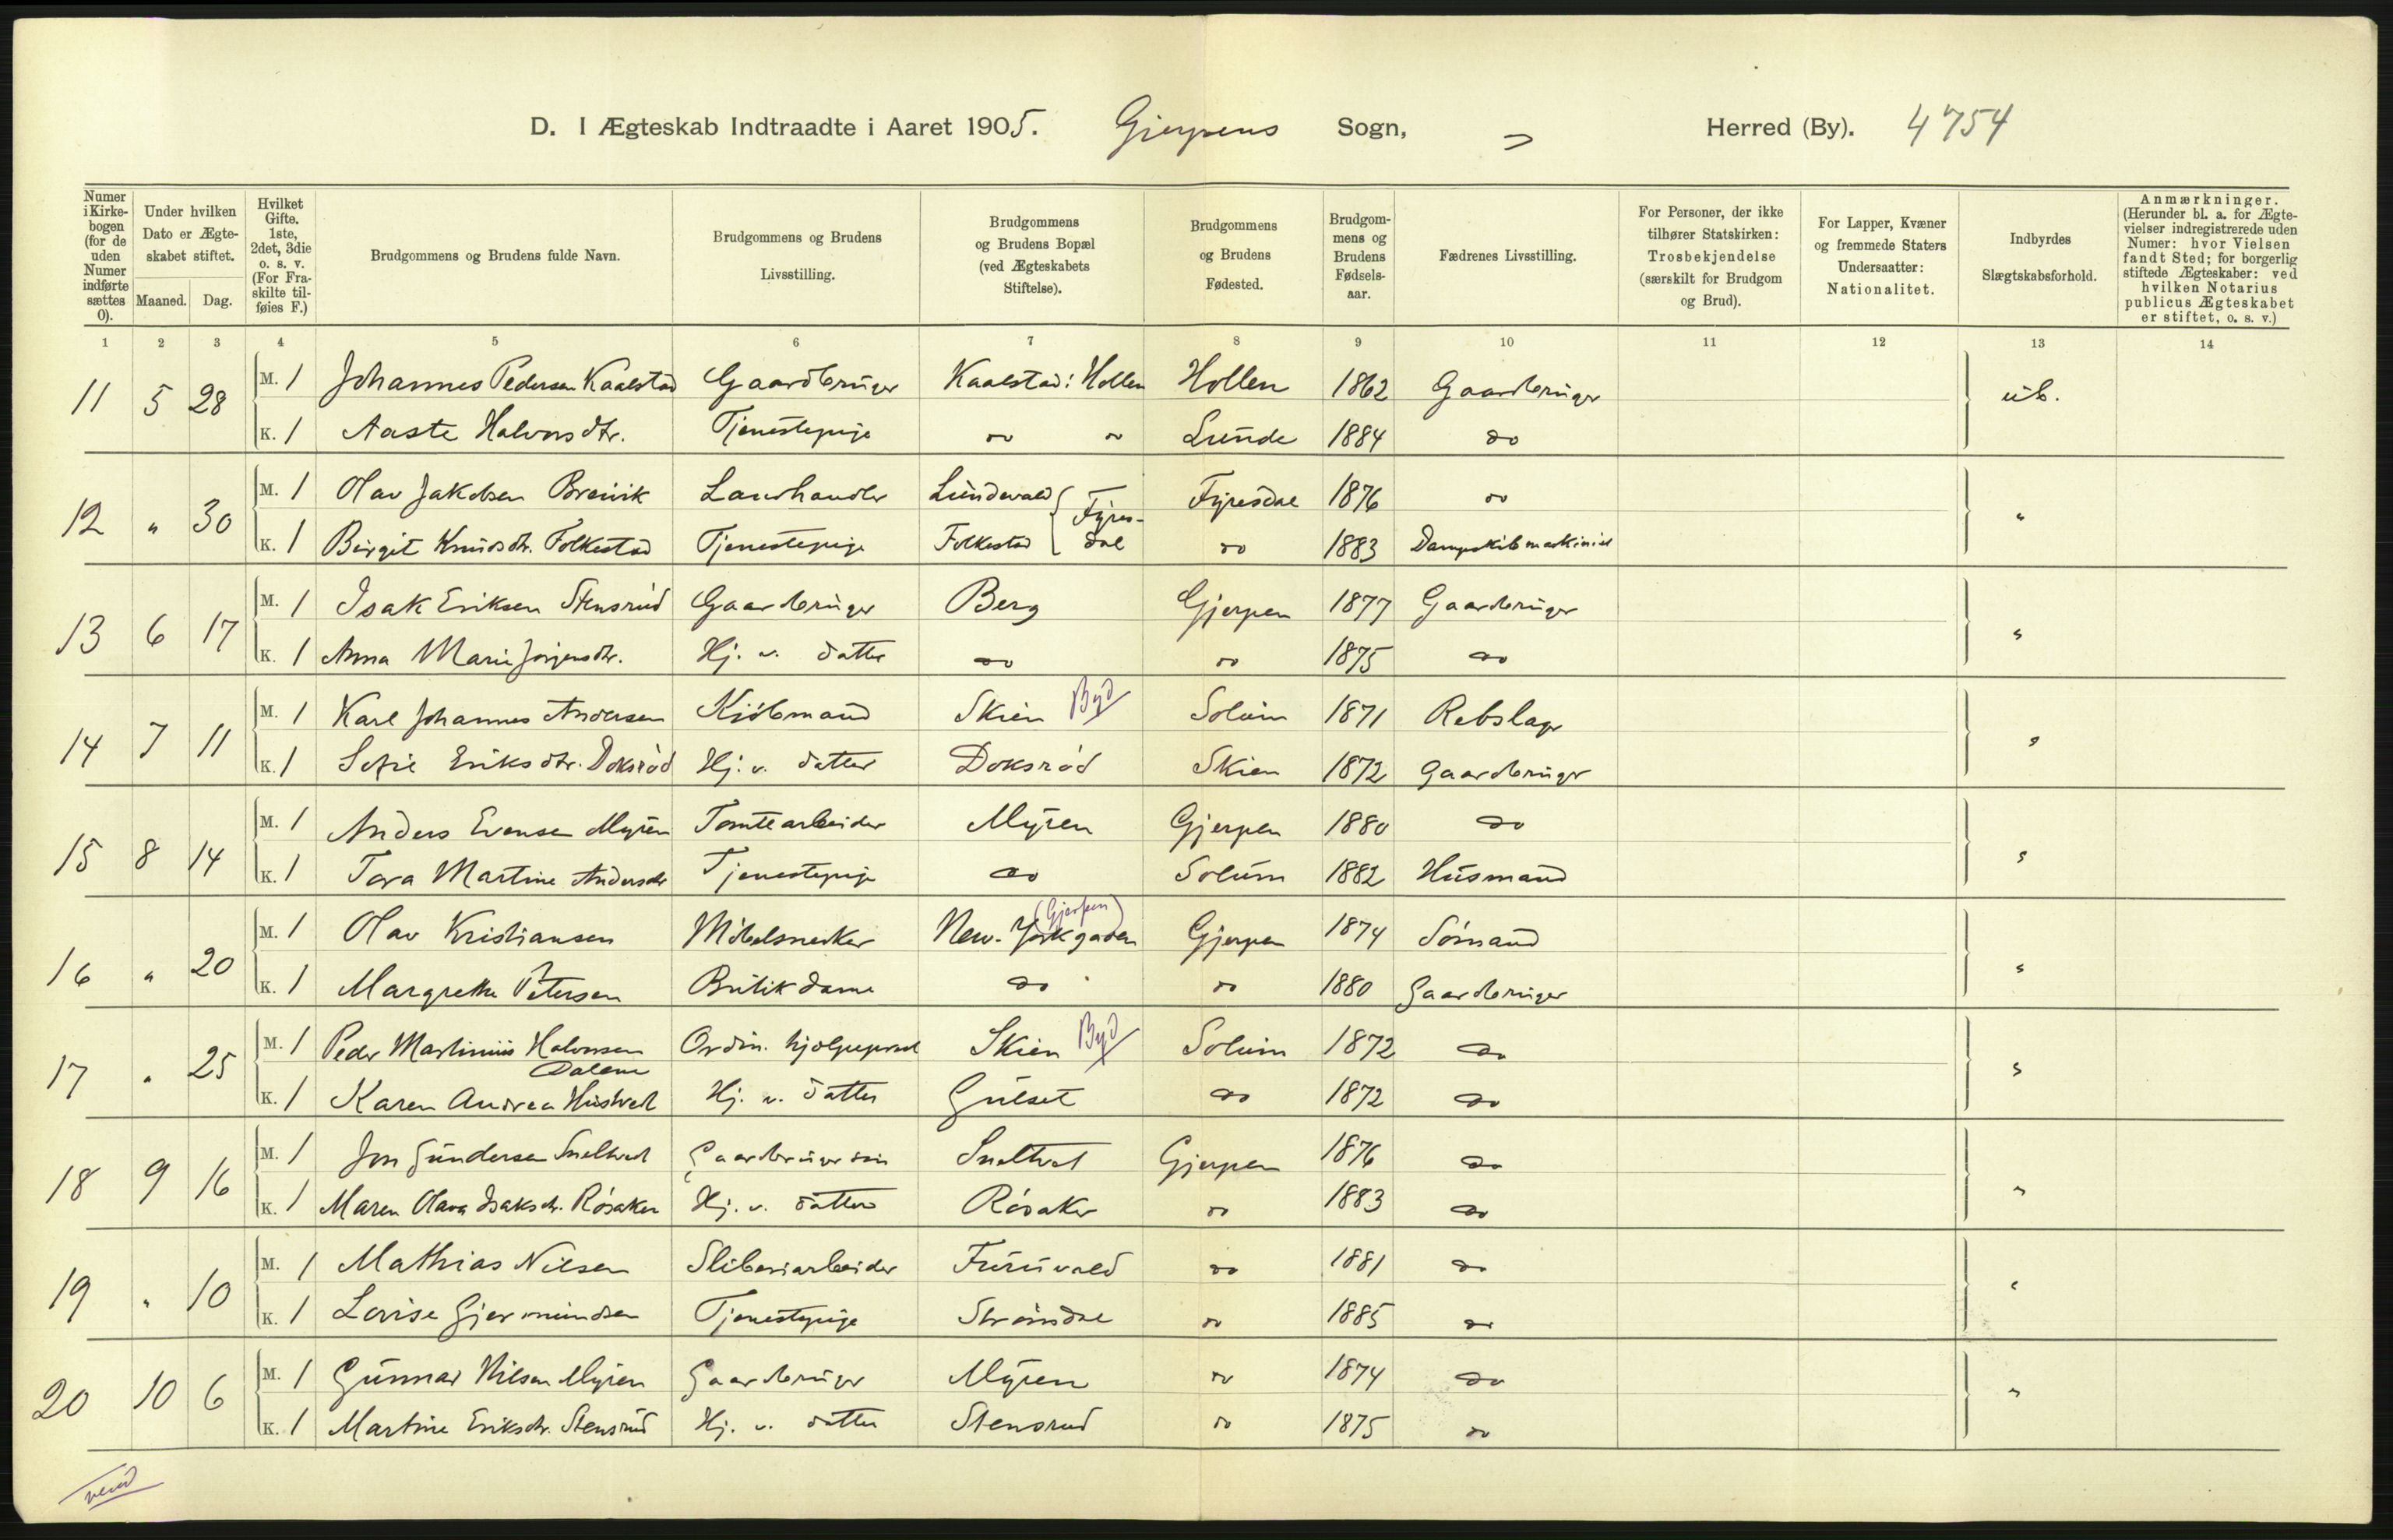 D. I Ægteskab Indtraadte i Aaret 1905. Gjerpens Sogn, Herred (By). 4754
Numer i Kirkebogen (for de uden Numer indførte sættes 0).
Under hvilken Dato er Ægteskabet stiftet.
Maaned. Dag.
Hvilket Gifte. 1ste, 2det, 3die o. s. v. (For Fraskilte tilføies F.)
Brudgommens og Brudens fulde Navn.
Brudgommens og Brudens Livsstilling.
Brudgommens og Brudens Bopæl (ved Ægteskabets Stiftelse).
Brudgommens og Brudens Fødested.
Brudgommens og Brudens Fødselsaar.
Fædrenes Livsstilling.
For Personer, der ikke tilhører Statskirken: Trosbekjendelse (særskilt for Brudgom og Brud).
For Lapper, Kvæner og fremmede Staters Undersaatter: Nationalitet.
Indbyrdes Slægtskabsforhold.
Anmærkninger. (Herunder bl. a. for Ægtevielser indregistrerede uden Numer: hvor Vielsen fandt Sted; for borgerlig stiftede Ægteskaber: ved hvilken Notarius publicus Ægteskabet er stiftet, o. s. v.)
1 2 3 4 5 6 7 8 9 10 11 12 13 14
11 5 28 M. 1 Johannes Pedersen Kaalstad Gaardbruger Kaalstad: Hollen Hollen 1862 Gaardbruger ub.
K. 1 Aaste Halvorsdtr. Tjenestepige do do Lunde 1884 do
12 " 30 M. 1 Olav Jakobsen Breivik Landhandler Lundevald Fyresdal Fyresdal 1876 do "
K. 1 Birgit Knudsdtr. Folkestad Tjenestepige Folkestad do 1883 Dampskibsmaskinist
13 6 17 M. 1 Isak Eriksen Stensrud Gaardbruger Berg Gjerpen 1877 Gaardbruger "
K. 1 Anna Marie Jørgensdtr. Hj. v. datter do do 1875 do
14 7 11 M. 1 Karl Johannes Andersen Kjøbmand Skien Byd Solum 1871 Rebslager "
K. 1 Sofie Eriksdtr. Doksrød Hj. v. datter Doksrød Skien 1872 Gaardbruger
15 8 14 M. 1 Anders Evensen Myren Tomtearbeider Myren Gjerpen 1880 do "
K. 1 Tora Martine Andersdtr Tjenestepige do Solum 1882 Husmand
16 " 20 M. 1 Olav Kristiansen Møbelsnedker New-Yorkgaden (Gjerpen) Gjerpen 1874 Sømand "
K. 1 Margrethe Petersen Butikdame do do 1880 Gaardbruger
17 " 25 M. 1 Peder Martinius Halvorsen Dalene Ordin. hjælpeprest Skien Byd Solum 1872 do "
K. 1 Karen Andrea Hustvedt Hj. v. datter Gulset do 1872 do
18 9 16 M. 1 Jon Gundersen Sneltvedt Gaardbrugersøn Sneltvedt Gjerpen 1876 do "
K. 1 Maren Olava Isaksdtr. Røsaker Hj. v. datter Røsaker do 1883 do
19 " 10 M. 1 Mathias Nilsen Sliberiarbeider Furuvald do 1881 do "
K. 1 Lovise Gjermundsen Tjenestepige Strømdal do 1885 do
20 10 6 M. 1 Gunnar Nilsen Myren Gaardbruger Myren do 1874 do "
K. 1 Martine Eriksdtr. Stensrud Hj. v. datter Stensrud do 1875 do
vend